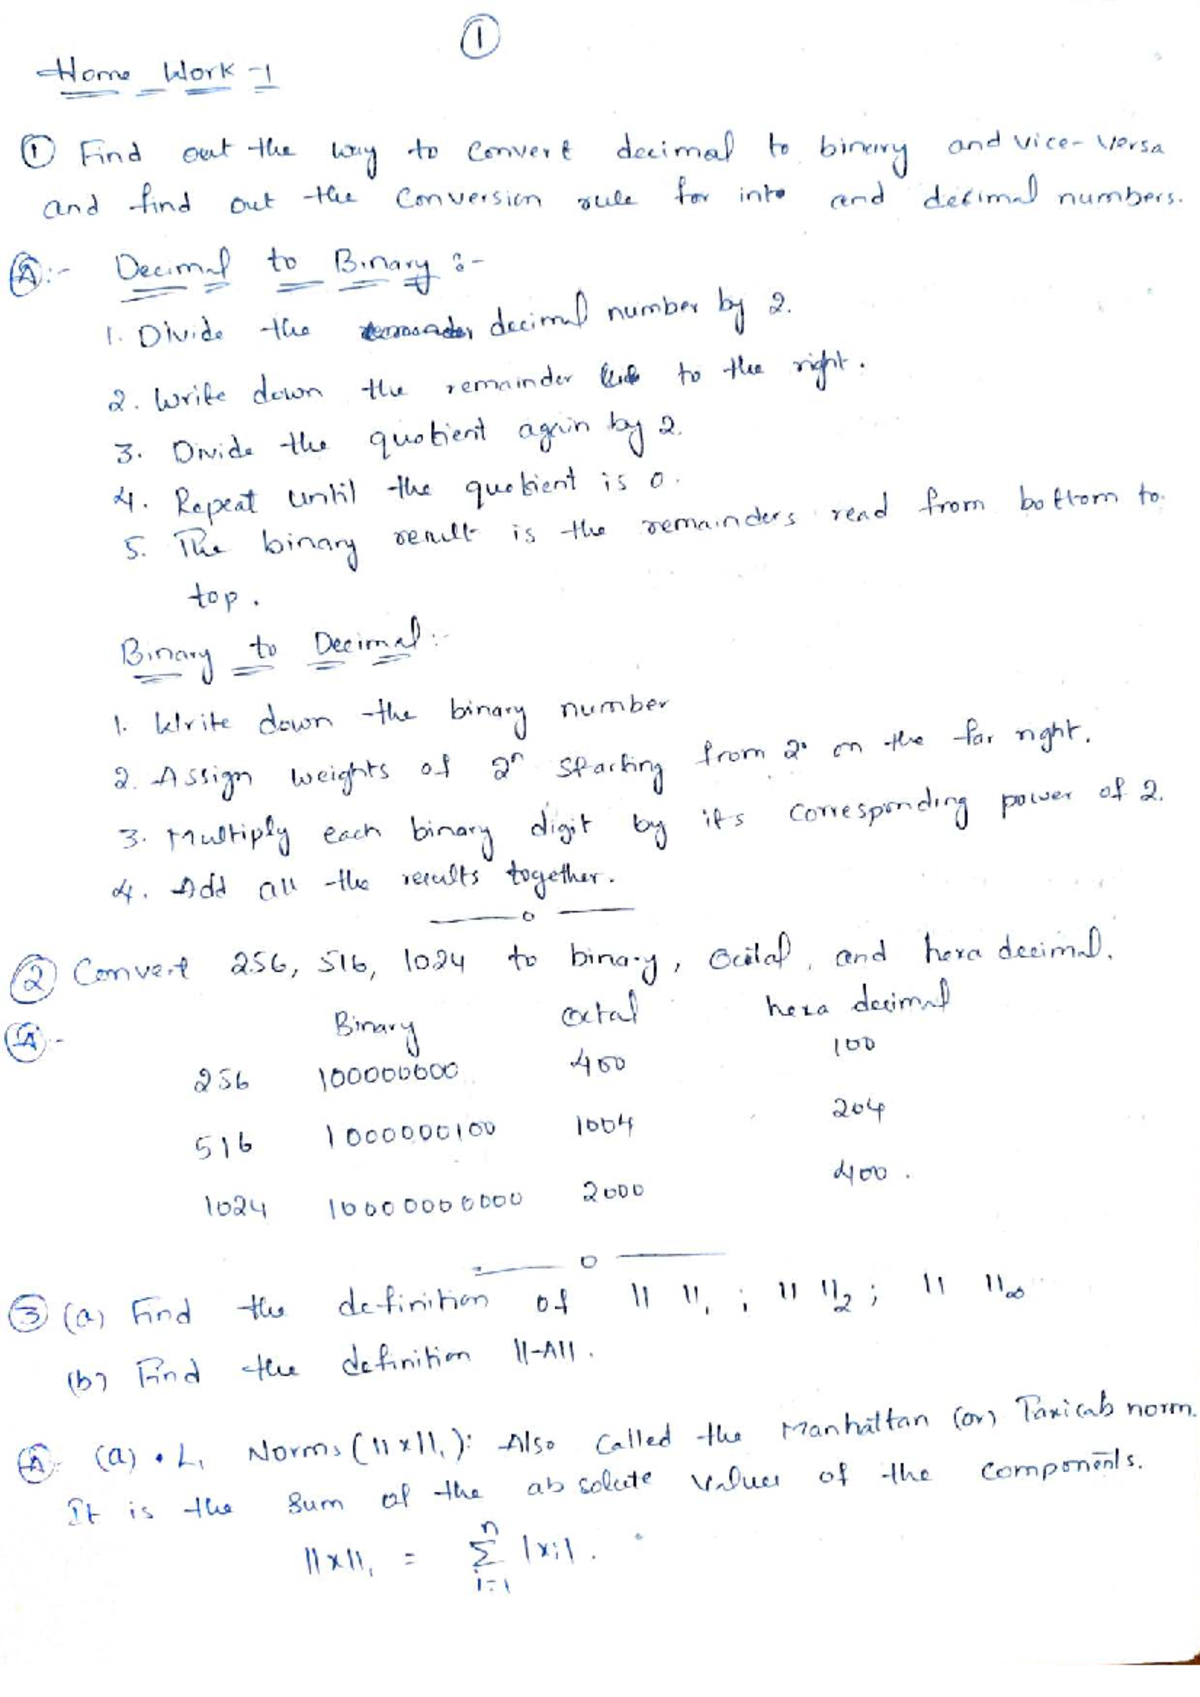 1
Home Work -1
1 Find out the way to convert decimal to binary and vice-versa
and find out the conversion rule for into and decimal numbers.
A:- Decimal to Binary :-
1. Divide the decimal number by 2.
2. Write down the remainder to the right.
3. Divide the quotient again by 2.
4. Repeat until the quotient is 0.
5. The binary result is the remainders read from bottom to
top.
Binary to Decimal:-
1. Write down the binary number
2. Assign weights of 2ⁿ starting from 2⁰ on the far right.
3. Multiply each binary digit by its corresponding power of 2.
4. Add all the results together.
2 Convert 256, 516, 1024 to binary, Octal, and hexa decimal.
A:- Binary octal hexa decimal
256 100000000 400 100
516 1000000100 1004 204
1024 10000000000 2000 400.
3 (a) Find the definition of || ||₁ ; || ||₂ ; || ||∞
(b) Find the definition ||A||.
A:- (a) • L₁ Norms (||x||₁): Also called the Manhattan (or) Taxicab norm.
It is the sum of the absolute values of the components.
||x||₁ = n∑i=1 |xi|.